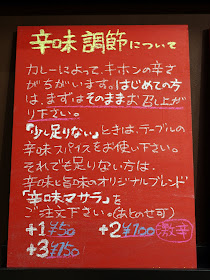 辛味調節について
カレーによって、キホンの辛さ
がちがいます。はじめての方
は、まずはそのままお召し上が
り下さい。
「少し足りない」ときは、テーブルの
辛味スパイスをお使い下さい。
それでも足りない方は、
辛味と旨味のオリジナルブレンド
「辛味マサラ」を
ご注文下さい。(あとのせ可)
+1 ¥50 +2 ¥100 激辛
+3 ¥150